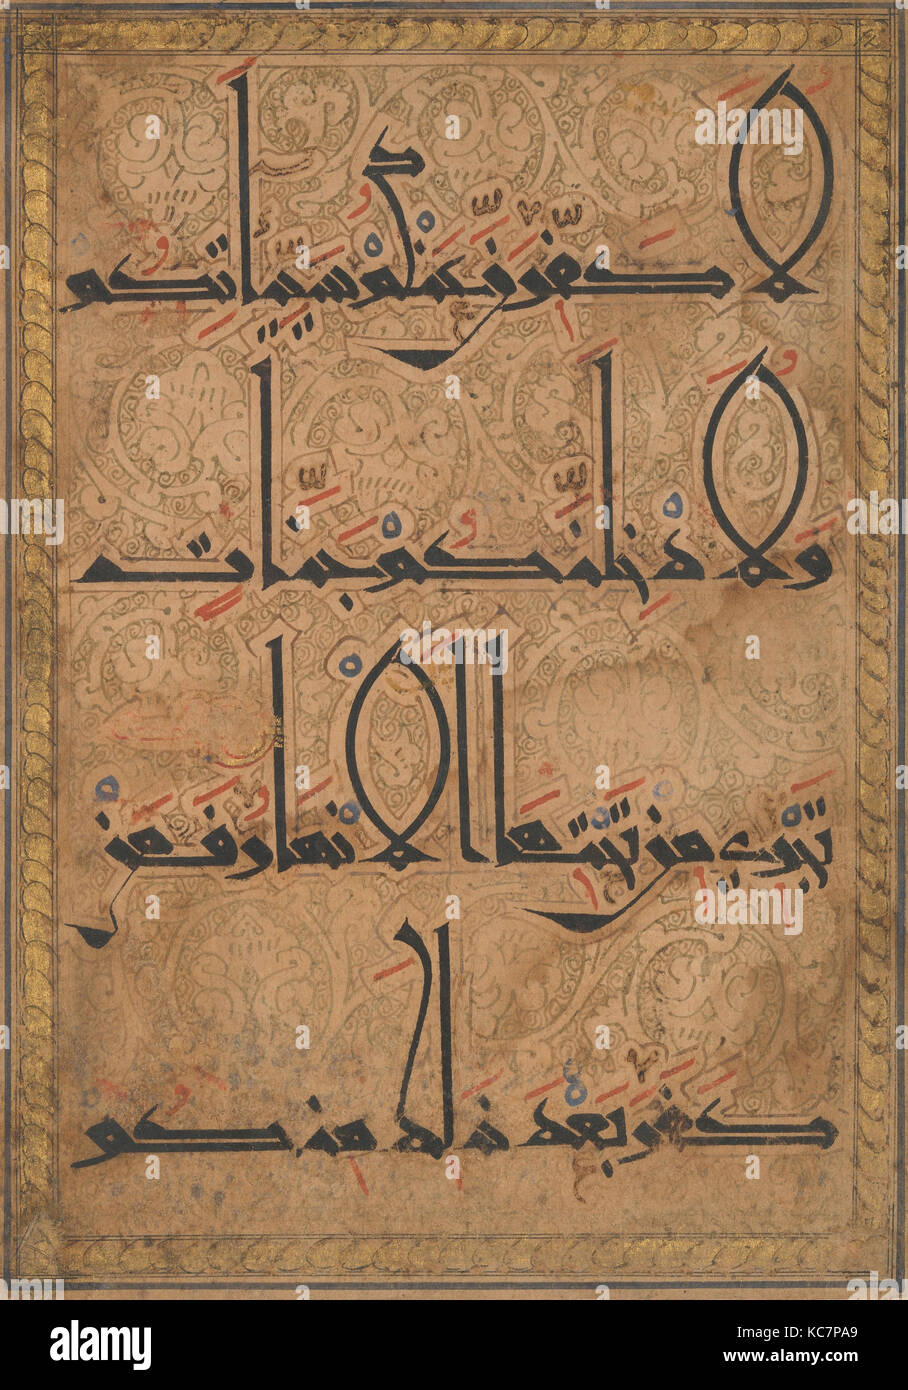 لأكفرن عنكم سيئاتكم
ولأدخلنكم جنات
تجري من تحتها الأنهار فمن
كفر بعد ذلك منكم
alamy
Image ID: KC7PA9
www.alamy.com